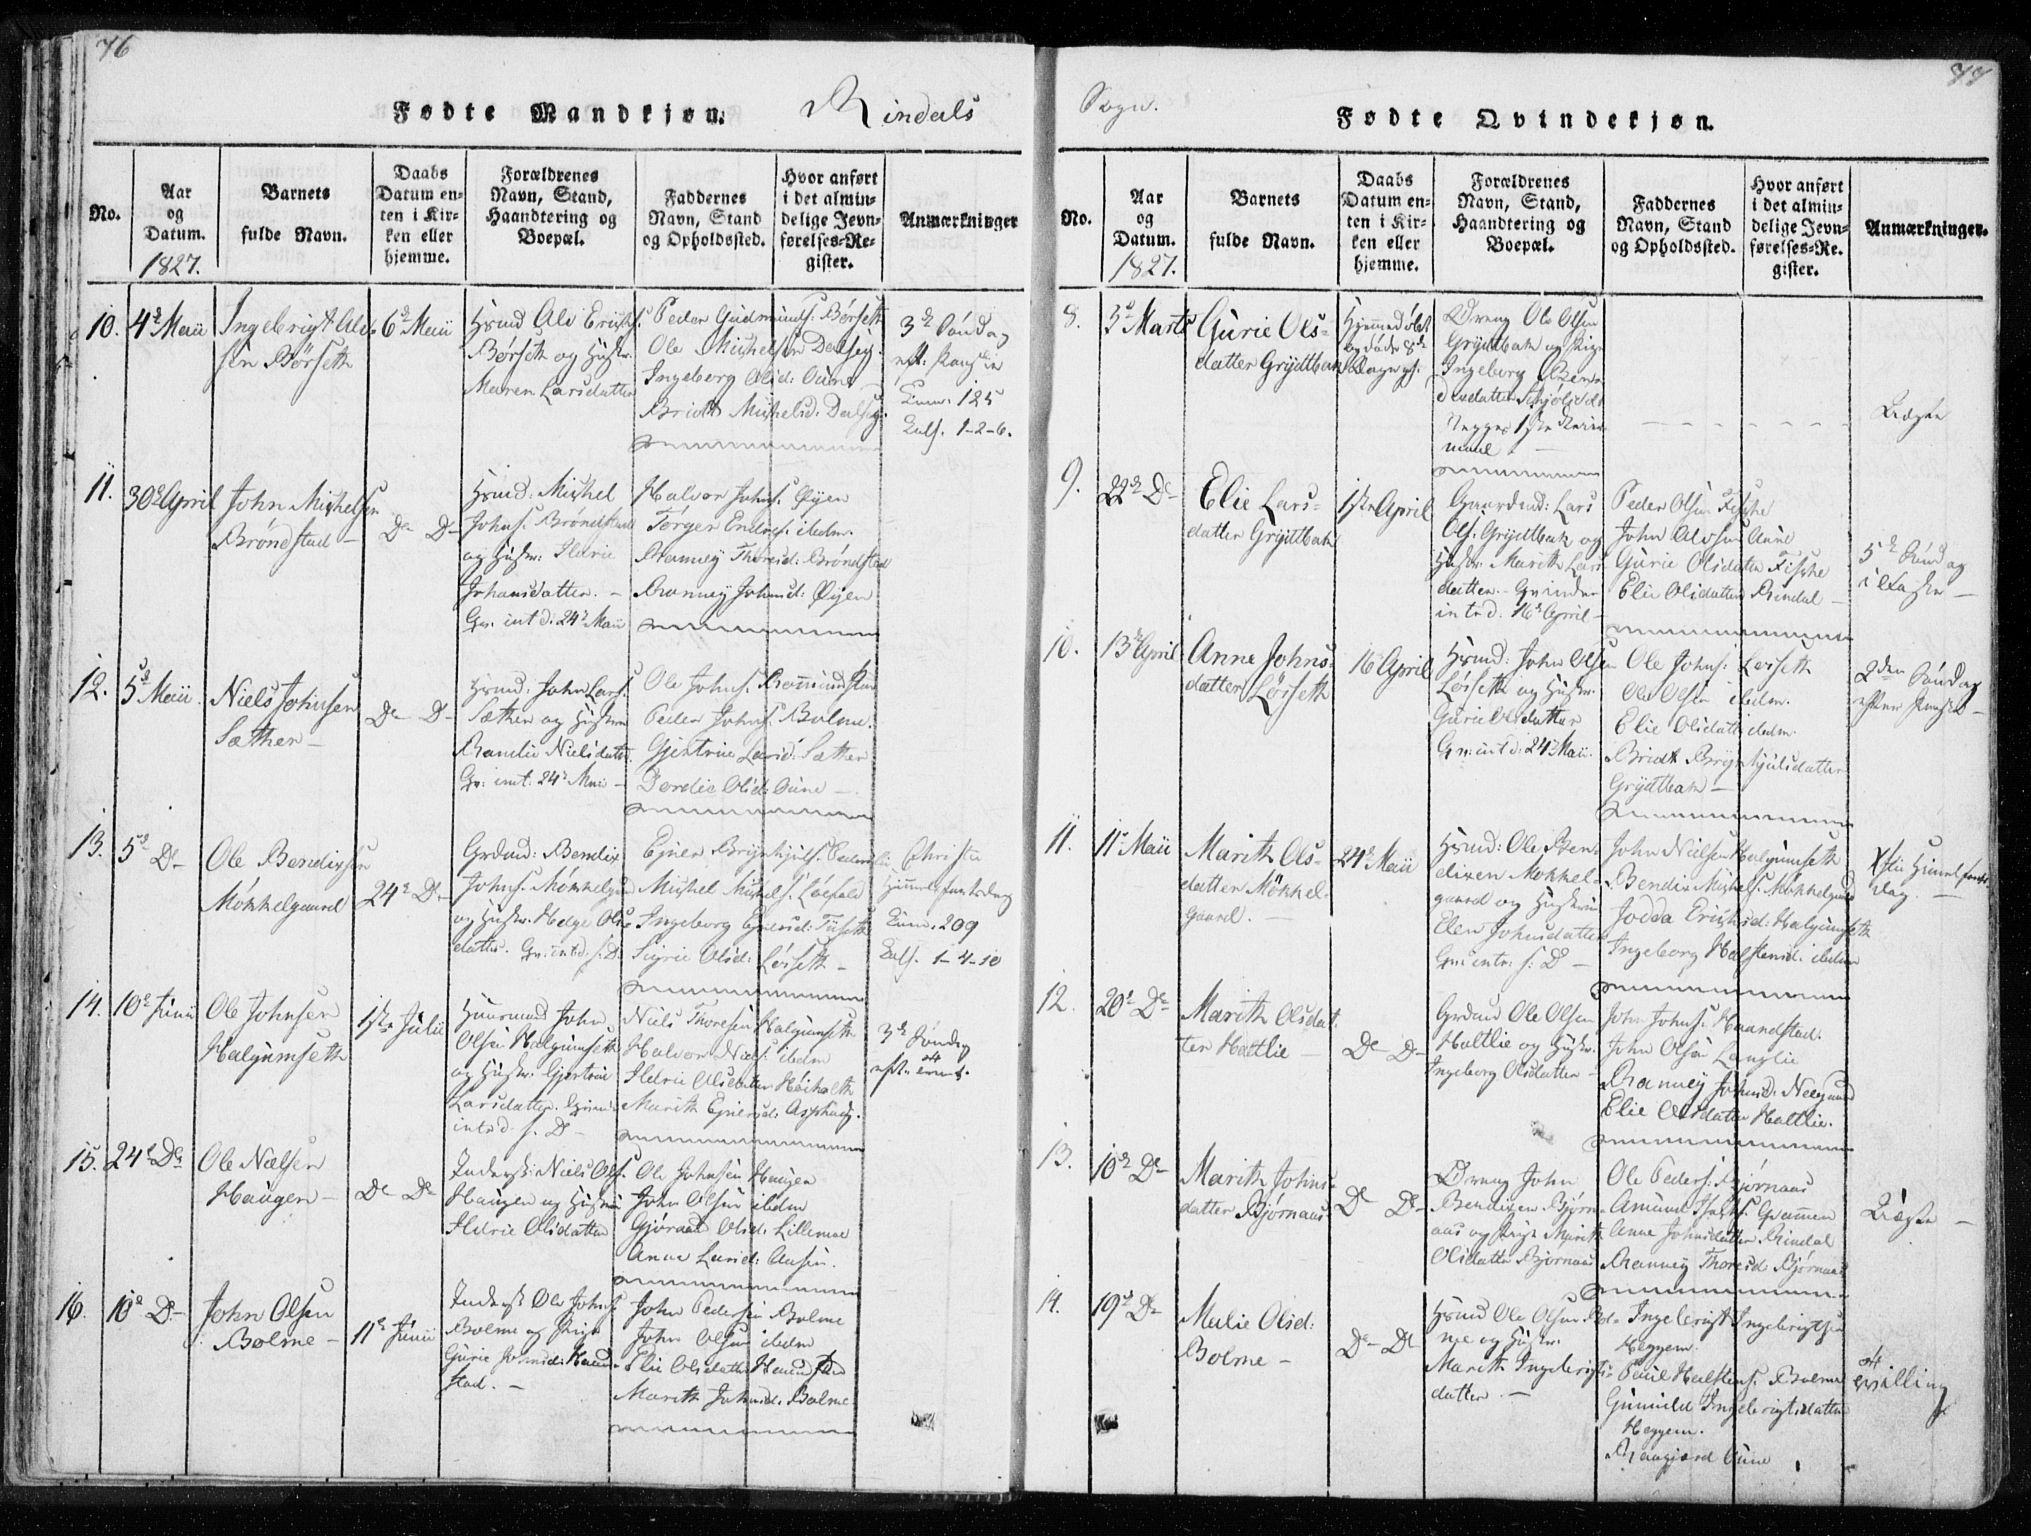 76
Fødte Mandkjøn.
Rindals
No.
Aar
og
Datum.
1827.
Barnets
fulde Navn.
Daabs
Datum en-
ten i Kir-
ken eller
hjemme.
Forældrenes
Navn, Stand,
Haandtering og
Boepæl.
Faddernes
Navn, Stand
og Opholdssted.
Hvor anført
i det almin-
delige Jevn-
førelses-Re-
gister.
Anmærkninger
10.
4de Maii
Ingebrigt Als
sen Børseth
6de Maii
Hsmd Ole Erichs.
Børseth og Hustr.
Maren Larsdatter
Peder Gudmunds. Børseth
Ole Michelsen Dalseg.
Ingeborg Olsd: Oune
Bridt Michelsd. Dalseg.
3de Søndag
eft. Paaske
125
1-2-6.
11.
30te April
John Michelsen
Brøndstad
Do Do
Hsmd: Michel
Johns. Brøndstad
og Hustr: Ildrie
Johansdatter. -
Qv. int d. 24de Maii
Halvor Johns. Øyen
Torger Endres. ibdm.
Ranney Thoresd: Brøndstad
Ranney Johnsd: Øyen
12.
5de Maii
Niels Johnsen
Sæther -
Do Do
Hsmd: John Lars.
Sæther og Hustr.
Randie Nielsdatter
Qv. int: 24de Maii -
Ole Johns. Romundstad
Peder Johns. Bolme.
Gjertrue Larsd: Sæther
Dordie Olsd: Oune -
13.
5de Do
Ole Bendixsen
Møkkelgaard
24de Do
Grdmd: Bendix
Johns. Møkkelgaard
og Hustr. Helge Ols
datter. Qv. intd. s. D.
Ejner Brynhjuls.
Michel Michels. Løefald
Ingeborg Ejnersd: Tiseth
Sigrie Olsd: Løfseth -
Christi
Himmelfartsdag
209
1-4-10
14.
10de Junii
Ole Johnsen
Halgumseth
1ste Julii
Huusmand John
Olsen Halgumseth
og Hustr. Gjertrue
Larsdatter.
intrd. s. D -
Niels Thoresen Halgumseth
Halvor Niels. ibdm
Ildrie Olsdatter Heiholth
Marith Ejnersd: Asphaug.
3de Søndag
eft. Trinit.
15.
24de Do
Ole Nielsen
Haugen -
Do Do
Inderst: Niels Ols.
Haugen og Hustru
Ildrie Olsdatter
Ole Johnsen Haugen
John Olsen ibdm
Gjøraad Olsd: Lillemoe
Anne Larsd:
16.
10de Do
John Olsen
Bolme -
11te Junii
Inderst Ole Johns.
Bolme og Pige
Gurie Johnsd: Haand
stad. -
John Pedersen Bolme
John Olsen ibdm
Elie Olsdatter Haandstad
Marith Johnsd. Bolme
77
Sogn.
Fødte Qvindekjøn.
No.
Aar
og
Datum.
1827.
Barnets
fulde Navn.
Daabs
Datum en-
ten i Kir-
ken eller
hjemme.
Forældrenes
Navn, Stand,
Haandtering og
Boepæl.
Faddernes
Navn, Stand
og Opholdssted.
Hvor anført
i det almin-
delige Jevn-
førelses-Re-
gister.
Anmærkninger.
8.
3de Marts
Gurie Ols-
datter Grytbak
Hjemmedøbt
og døde 8de
Dreng Ole Olsen
Grytbak og Pige
Ingeborg
datter
Begges 1ste Leier
maal -
Uægte
9.
22de Do
Elie Lars-
datter Grytbak
1ste April
Gaardmd: Lars
Ols. Grytbak og
Hustr. Marith Lars
datter. - Qvinden
intrd. 16de April -
Peder Olsen Fiske
John Alvsen Oune
Gurie Olsdatter Fiske
Elie Olsdatter Rindal -
5te Søndag
i Faste -
10.
13de April
Anne Johns-
datter Løfseth
16 April
Hsmd: John Olsen
Løfseth og Hustr.
Gurie Olsdatter
Qv. int d: 24de Maii.
Ole Johns. Løfseth
Ole Olsen ibdm.
Elie Olsdatter ibdm.
Bridt Brynhjulsdatter
Grytbak -
2den Søndag
efter Paaske -
11.
11te Maii
Marith Ols-
datter Møkkel-
gaard. -
24de Maii
Hsmd: Ole Ben-
dixen Møkkel-
gaard og Hustru
Elen Johnsdatter
Qv. intr: s: D -
John Nielsen Halgumseth
Bendix Michels. Møkkelgaard
Jodda Erichsd: Halgumseth
Ingeborg Halstensd. ibdm
Xsti Himmelfarts
dag. -
12.
20de Do
Marith Olsdat
ter Haltlie -
Do Do
Grdmd Ole Olsen
Haltlie og Hustr.
Ingeborg Olsdatter -
John Johns. Haandstad.
John Olsen Langlie
Ranney Johnsd: Neegaard
Elie Olsdatter Haltlie.
13.
10de Do
Marith Johns-
datter Bjørnaas
Do Do
Dreng John
Bendixen Bjørn-
aas og Pige Marith
Olsdatter Bjørnaas
Ole Peders. Bjørnaas
Amund
Anne Johnsdatter Rindal
Ranney Thoresd: Bjørnaas
Uægte -
14.
19de Do
Malie Olsd:
Bolme -
Do Do
Hsmd Ole Olsen Bol-
me og Hustr.
Marith Ingebrigts
datter. -
Ingebrigt Ingebrigtsen
Heggem.
Poul Halstens. Bolme
Gunild Ingebrigtsdatter
Heggem.
Oune
Tvilling